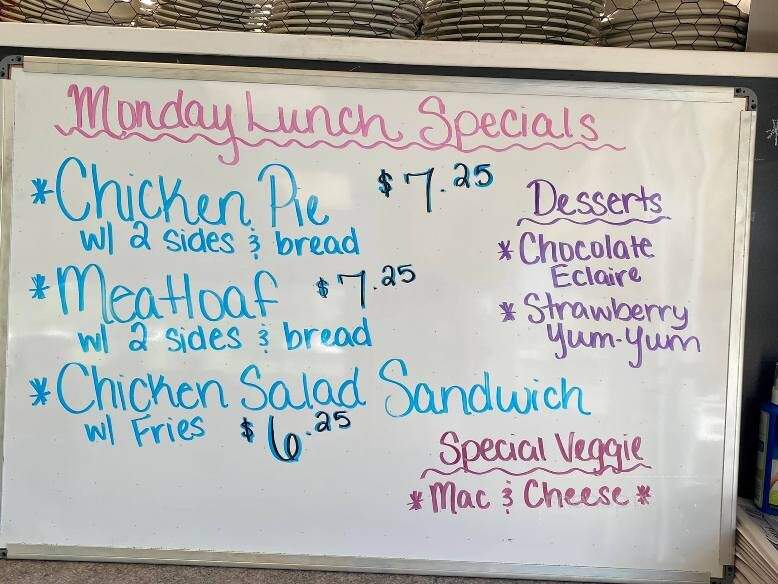 Monday Lunch Specials
*Chicken Pie $7.25
w/ 2 sides & bread
*Meatloaf $7.25
w/ 2 sides & bread
*Chicken Salad Sandwich
w/ Fries $6.25
Desserts
*Chocolate
Eclaire
*Strawberry
Yum-Yum
Special Veggie
*Mac & Cheese*